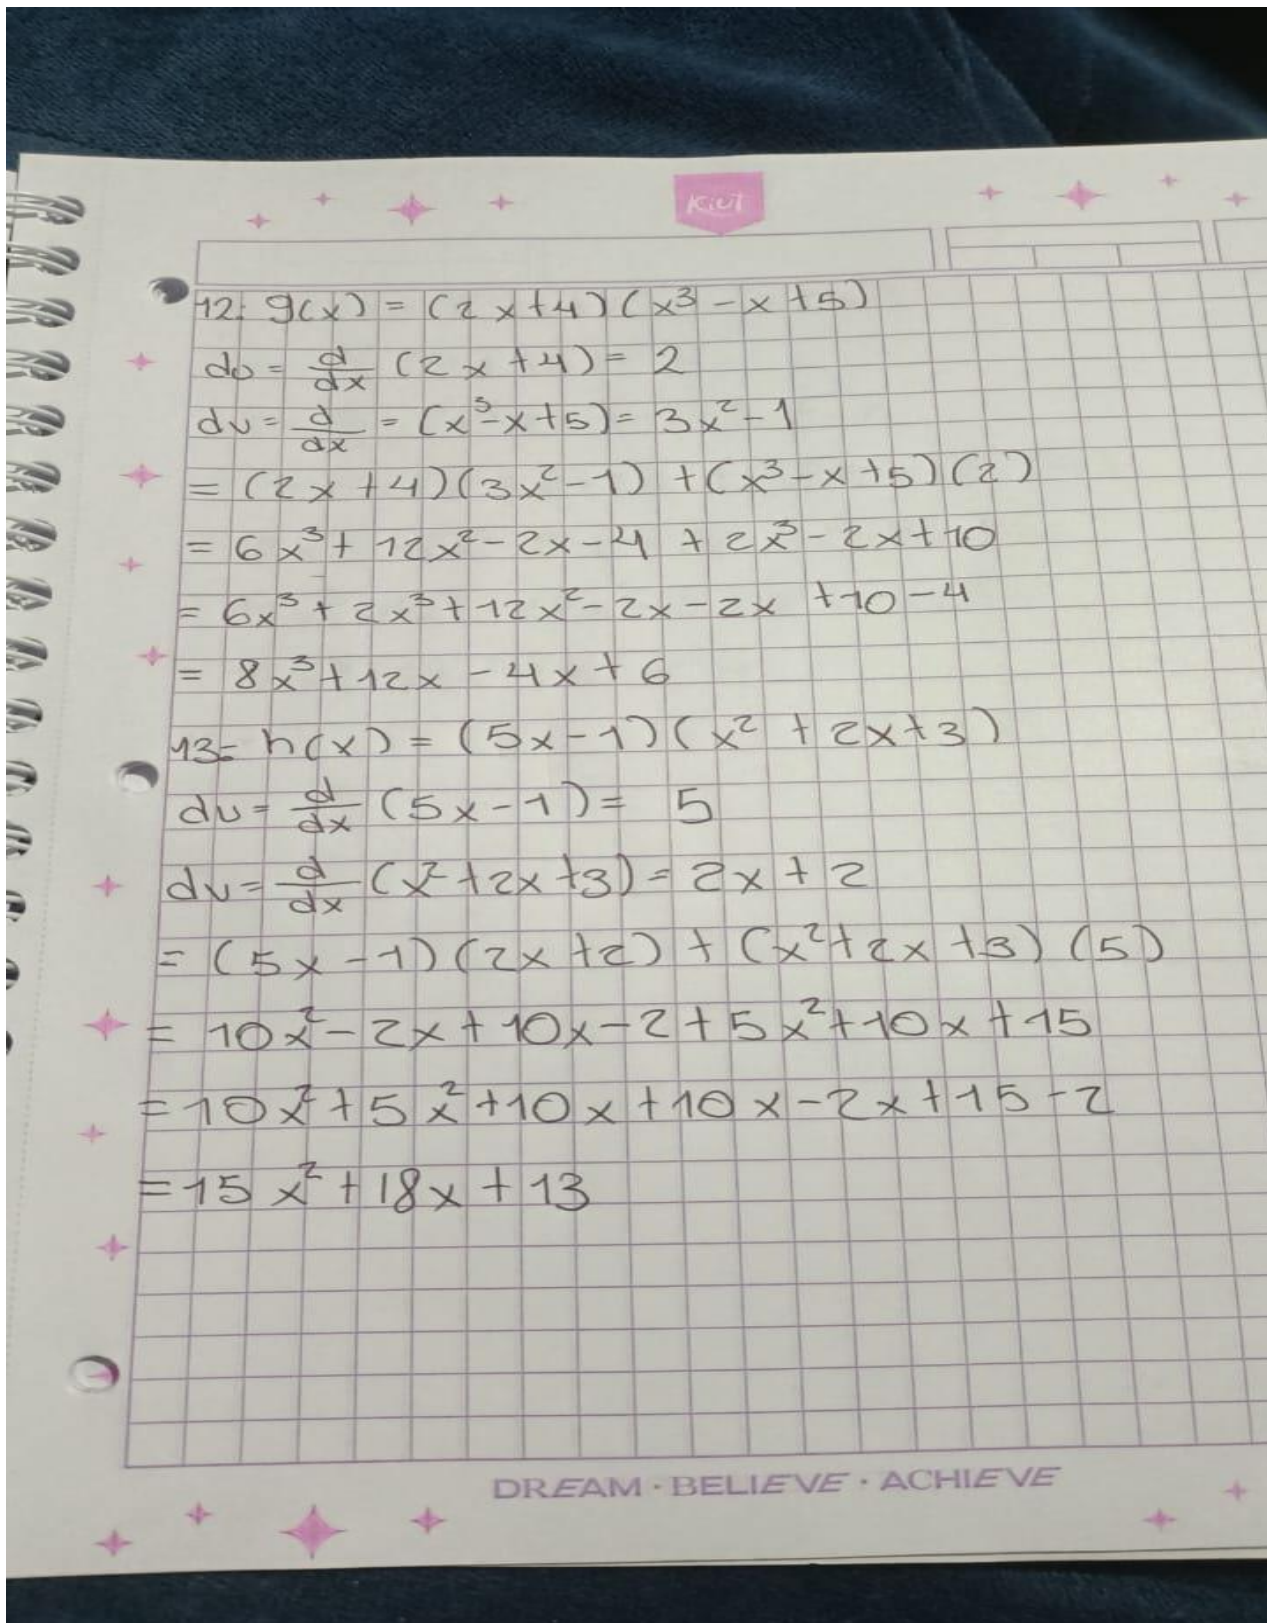 Kiut
12. g(x) = (2x+4)(x³-x+5)
du = d/dx (2x+4) = 2
dv = d/dx = (x³-x+5) = 3x²-1
= (2x+4)(3x²-1) + (x³-x+5)(2)
= 6x³ + 12x² - 2x - 4 + 2x³ - 2x + 10
= 6x³ + 2x³ + 12x² - 2x - 2x + 10 - 4
= 8x³ + 12x - 4x + 6
13- h(x) = (5x-1)(x² + 2x+3)
du = d/dx (5x-1) = 5
dv = d/dx (x²+2x+3) = 2x+2
= (5x-1)(2x+2) + (x²+2x+3)(5)
= 10x² - 2x + 10x - 2 + 5x² + 10x + 15
= 10x² + 5x² + 10x + 10x - 2x + 15 - 2
= 15x² + 18x + 13
DREAM · BELIEVE · ACHIEVE